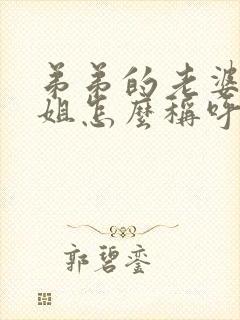 弟弟的老婆
姐怎麼稱呼
郭碧銮